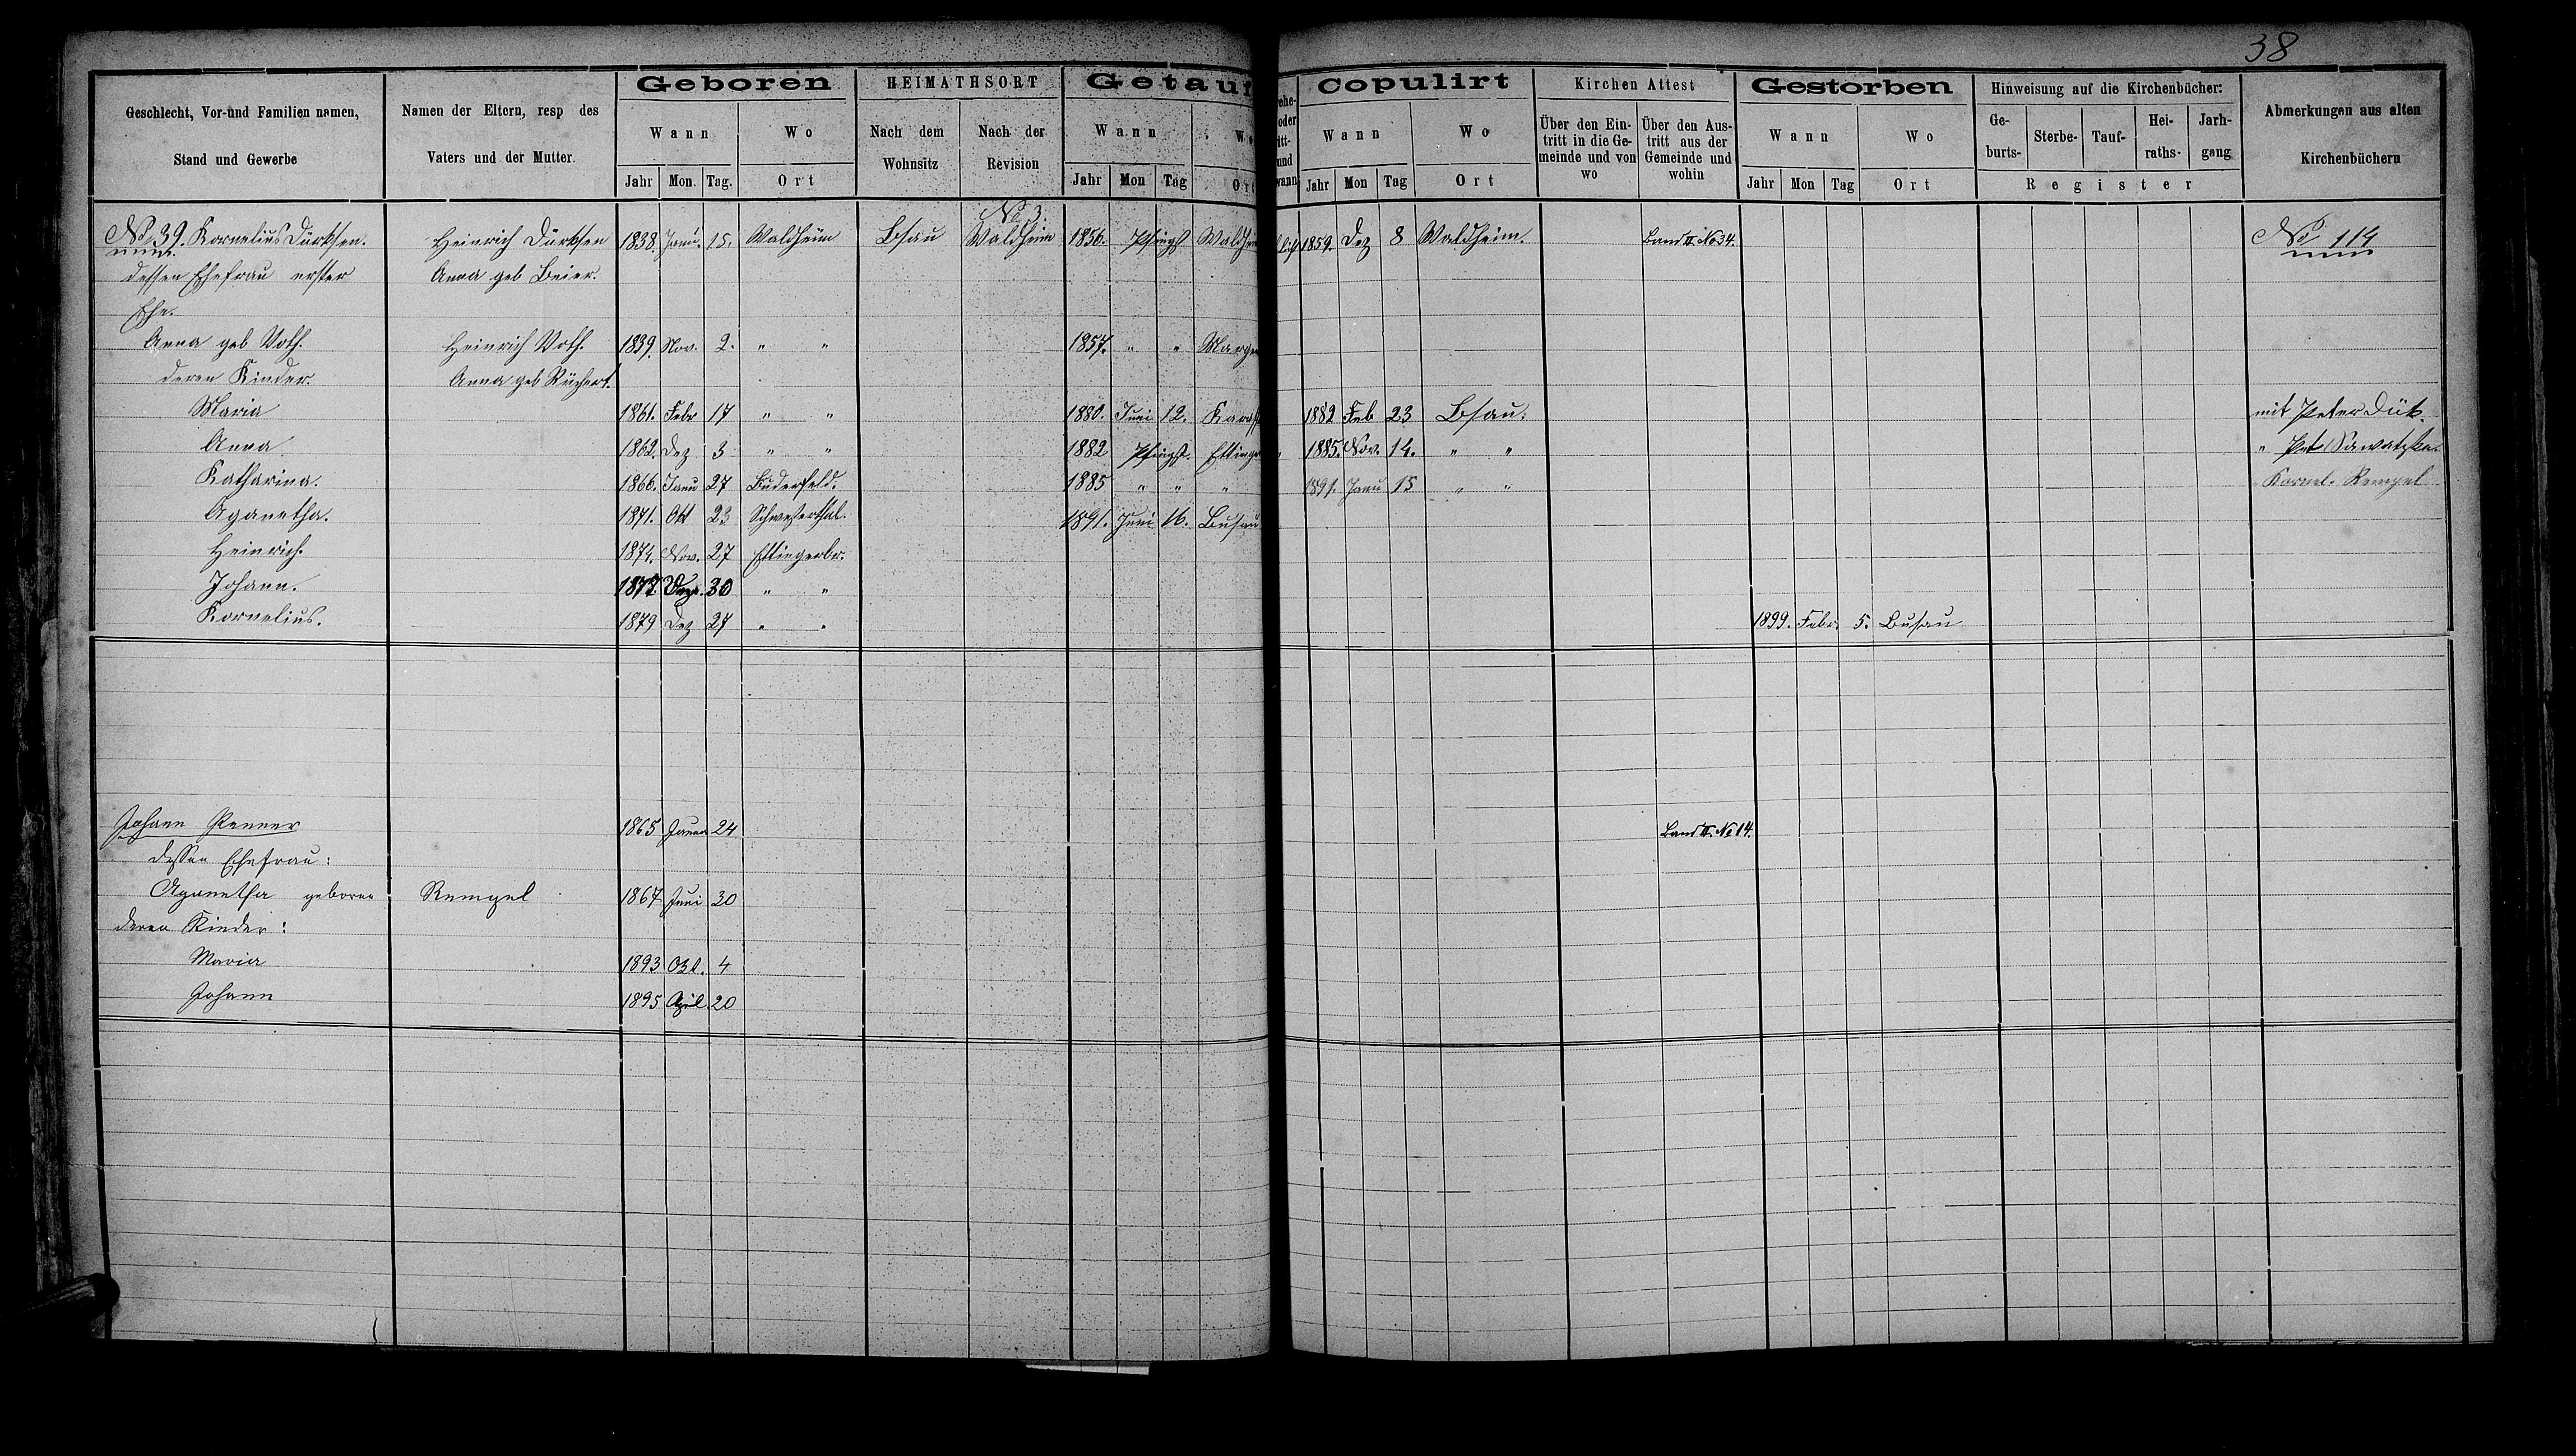 38
Geschlecht, Vor-und Familien namen, Stand und Gewerbe
Namen der Eltern, resp des Vaters und der Mutter.
Geboren Wann Jahr Mon. Tag. Wo Ort
HEIMATHSORT Nach dem Wohnsitz Nach der Revision
Getauf Wann Jahr Mon Tag Ort
Copulirt Wann Jahr Mon Tag Wo Ort
Kirchen Attest Über den Eintritt in die Gemeinde und von wo Über den Austritt aus der Gemeinde und wohin
Gestorben Wann Jahr Mon Tag Wo Ort
Hinweisung auf die Kirchenbücher: Geburts- Sterbe- Tauf- Heiraths- Jarhgang Register
Abmerkungen aus alten Kirchenbüchern
No 3.
No 39. Kornelius Dürksen. Heinrich Dürksen 1838. Janu. 15. Waldheim Bsau Waldheim 1856. Pfingst Waldhei 1859. Dez 8 Waldheim. Band II. No 34. No 114
dessen Ehefrau erster Anna geb Beier.
Ehe.
Anna geb Voth. Heinrich Voth. 1839. Nov. 2. " " 1857. " " Marge
deren Kinder. Anna geb
Maria 1861. Febr 17 " " 1880. Juni 12. Karass 1882 Feb 23 Bsau. mit Peter Dük.
Anna 1862. Dez 3 " " 1882 Pfingst. Ettinge " 1885. Nov. 14. " " " Pet Sawatzka
Katharina. 1866. Janu 27 Buderfeld. 1885 " " " 1891. Janu 15 " " Kornel. Rempel
Aganetha. 1871. Okt 23 Schwesterthal. 1891. Juni 16. Busau
Heinrich. 1874. Nov. 27 Ettingerbr.
Johann. 1877. 30 " "
Kornelius. 1879 Dez 27 " " 1899. Febr. 5. Busau
Johann Penner 1865 Janua 24 Band II. No 14.
dessen Ehefrau:
Aganetha geboren Rempel 1867 Juni 30
deren Kinder:
Maria 1893 Okt. 4
Johann 1895 April 20